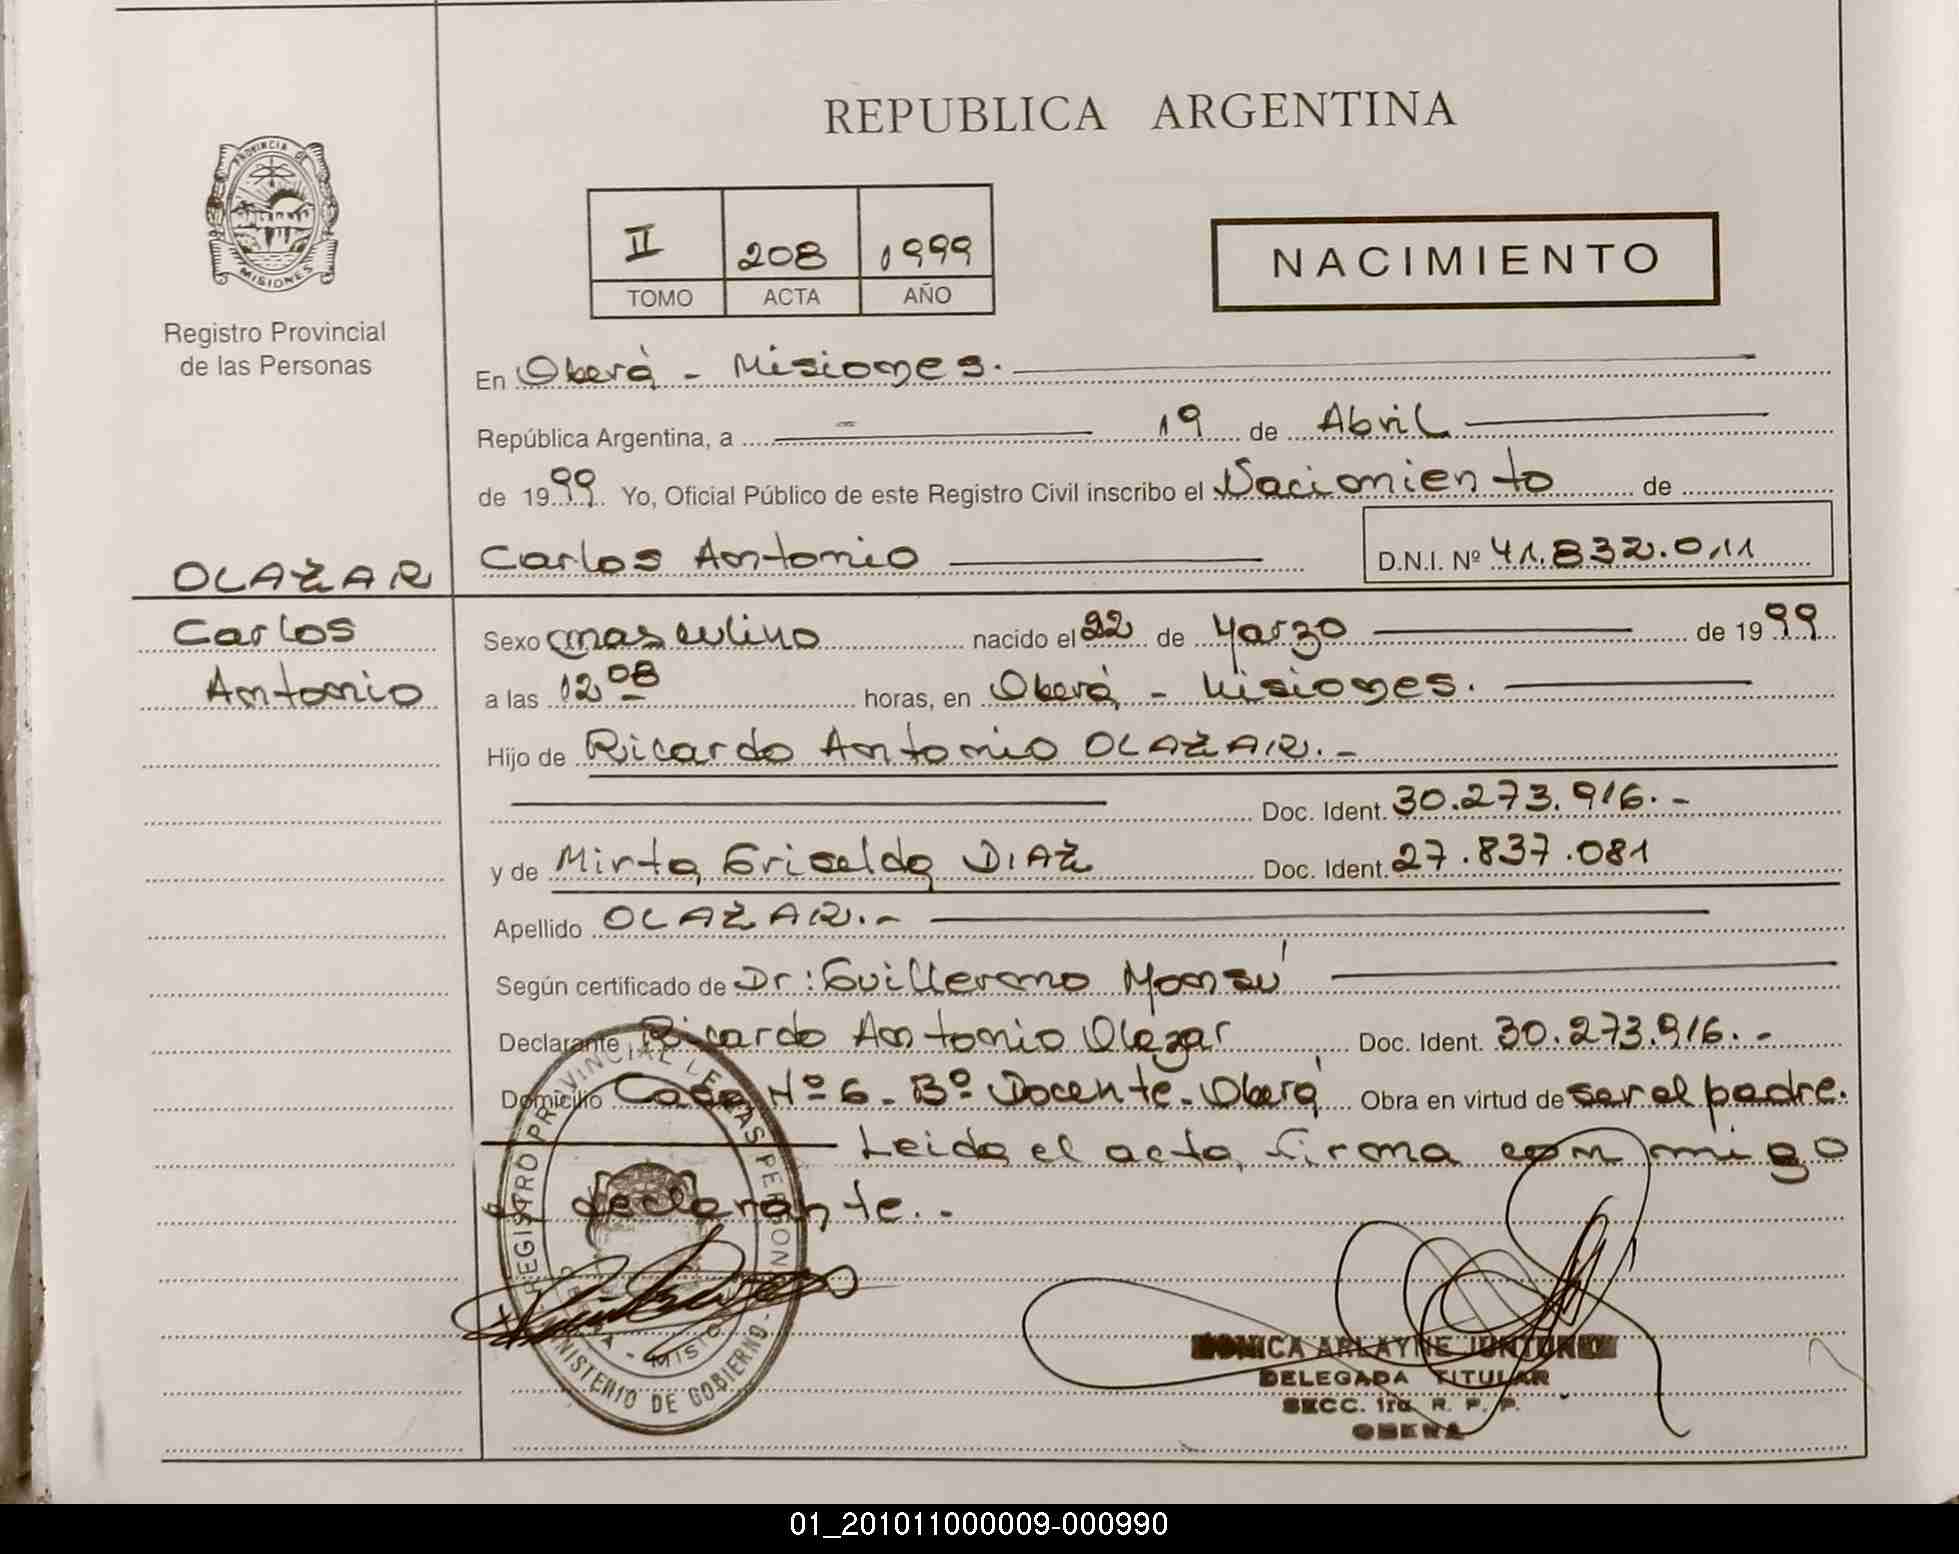 REPUBLICA ARGENTINA
PROVINCIA DE
MISIONES
Registro Provincial
de las Personas
II 208 1999
TOMO ACTA AÑO
NACIMIENTO
En Oberá - Misiones.
República Argentina, a 19 de Abril
de 1999 Yo, Oficial Público de este Registro Civil inscribo el Nacimiento de
OLAZAR
Carlos
Antonio
Carlos Antonio D.N.I. Nº 41.832.011
Sexo masculino nacido el 22 de Marzo de 1999
a las 12 08 horas, en Oberá - Misiones.
Hijo de Ricardo Antonio OLAZAR.-
Doc. Ident. 30.273.916.-
y de Mirta Griselda DIAZ Doc. Ident. 27.837.081
Apellido OLAZAR.-
Según certificado de Dr: Guillermo Monzú
Declarante Ricardo Antonio Olazar Doc. Ident. 30.273.916.-
Domicilio Casa Nº 6 - Bº Docente - Oberá Obra en virtud de ser el padre.
Leida el acta, firma conmigo
el declarante.-
REGISTRO PROVINCIAL DE LAS PERSONAS
MINISTERIO DE GOBIERNO
MONICA ARLAYNE
DELEGADA TITULAR
SECC. 1ra. R. P. P.
OBERA
01_201011000009-000990